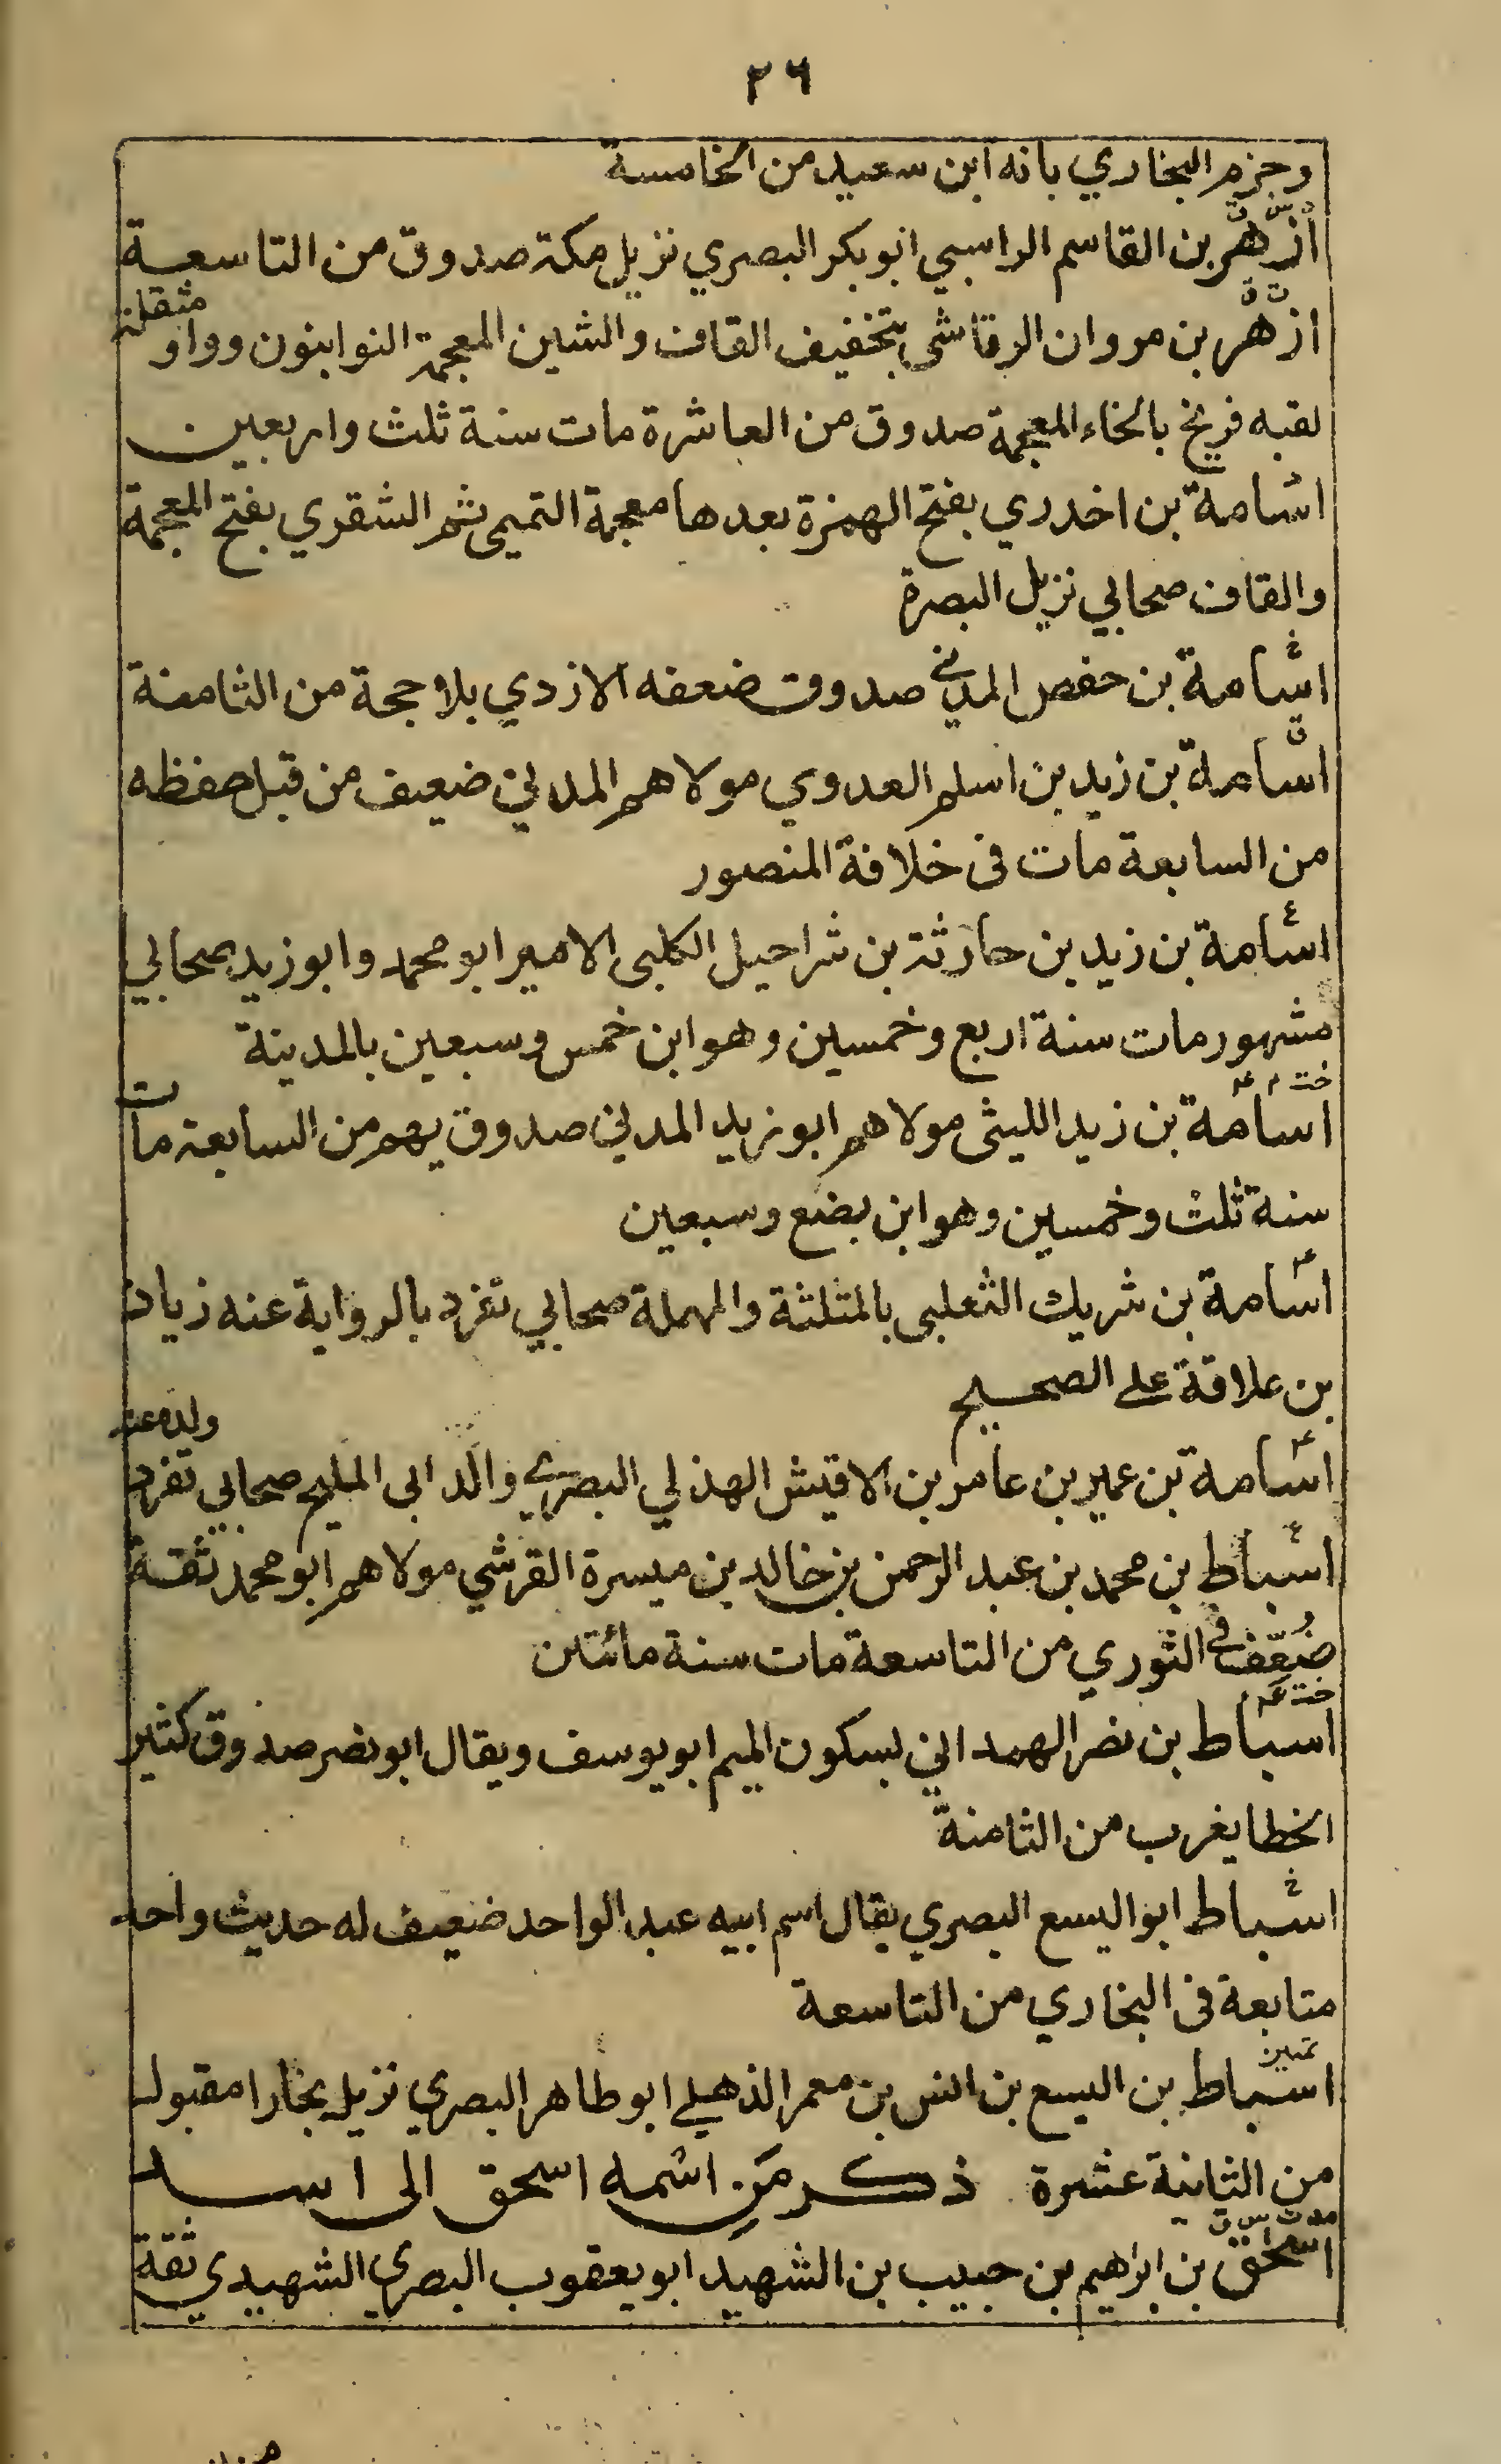 ٢٦
وجزم البخاري بانه ابن سعيد من الخامسة
ازهر بن القاسم الراسبي ابو بكر البصري نزيل مكة صدوق من التاسعة
ازهر بن مروان الرقاشي بتخفيف القاف والشين المعجمة النوا بنون وواو مثقلة
لقبه فريخ بالخاء المعجمة صدوق من العاشرة مات سنة ثلث واربعين
اسامة بن اخدري بفتح الهمزة بعدها معجمة التميمي ثم الشقري بفتح المعجمة
والقاف صحابي نزيل البصرة
اسامة بن حفص المدني صدوق ضعفه الازدي بلا حجة من الثامنة
اسامة بن زيد بن اسلم العدوي مولاهم المدني ضعيف من قبل حفظه
من السابعة مات فى خلافة المنصور
ع
اسامة بن زيد بن حارثة بن شراحيل الكلبى الامير ابو محمد وابو زيد صحابي
مشهور مات سنة اربع وخمسين وهو ابن خمس وسبعين بالمدينة
خت م عم
اسامة بن زيد الليثى مولاهم ابو زيد المدني صدوق يهم من السابعة مات
سنة ثلث وخمسين وهو ابن بضع وسبعين
اسامة بن شريك الثعلبى بالمثلثة والمهملة صحابي تفرد بالرواية عنه زياد
بن علاقة على الصحيح
اسامة بن عمير بن عامر بن الاقيش الهذلي البصري والد ابى المليح صحابي تفرد ولده عنه
ع
اسباط بن محمد بن عبد الرحمن بن خالد بن ميسرة القرشي مولاهم ابو محمد ثقة
ضُعِّف في الثوري من التاسعة مات سنة مائتين
خت م عم
اسباط بن نصر الهمداني بسكون الميم ابو يوسف ويقال ابو نصر صدوق كثير
الخطا يغرب من الثامنة
خ
اسباط ابو اليسع البصري يقال اسم ابيه عبد الواحد ضعيف له حديث واحد
متابعة فى البخاري من التاسعة
تمييز
اسباط بن اليسع بن انس بن معمر الذهلي ابو طاهر البصري نزيل بخارا مقبول
من الثانية عشرة ذكر من اسمه اسحق الى اسد
اسحق بن ابراهيم بن حبيب بن الشهيد ابو يعقوب البصري الشهيدي ثقة